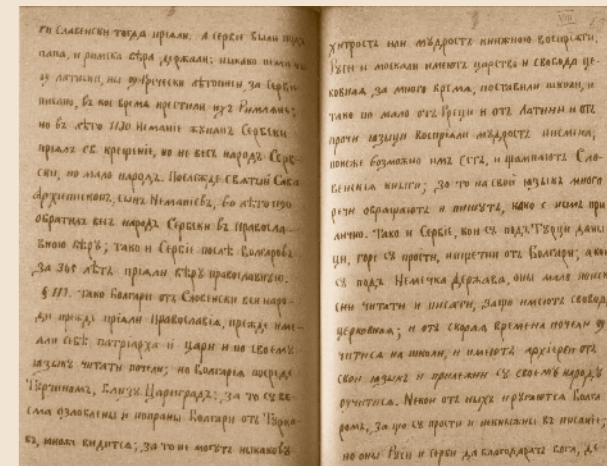 ги Славенски тогда прїали. а Серби были подъ
папа, и римска вѣра держали;
латински, ни Грѣчески лѣтописи, за Серби
писано, въ кое время крестили ихъ Римляне;
но въ лѣто 1170 Неманіе жупанъ Сербски
прїялъ св. крещенїе, но не весъ народъ Серб-
ски, но мало народъ. Послежде святый Сава
Архиепископъ, сынъ Неманїевъ, во лѣто 1190
обратилъ весъ народъ Сербски въ православ-
вною вѣру; тако и Сербїе послѣ Болгаровъ
за 365 лѣтъ прїяли вѣру православную.
§ 117. Тако Болгари отъ Словенски вси наро-
ди прежде прїяли православїа, прежде име-
али себѣ патрїарха и цари и по своемъ
языкъ читати почели; но Болгарїя посреде
Турчиномъ, близу Цариградъ; за то су ве-
сма озлоблены и попраны Болгари отъ Турко-
въ, видится; за то не могутъ никаковъ
VIII
хитрость или мудрость книжною воспрїяти.
Руси и москали имеютъ царство и свобода це-
рковная, за много время, поставили школи, и
тако по мало отъ Греци и отъ Латини и отъ
прочи языци воспрїяли мудрость писмена,
понеже возможно имъ естъ, и щампаютъ Сло-
венскїя книги; за то на свой языкъ много
речи обращаютъ и пишутъ, како с нимъ при-
лично. Тако и Сербїе, кои су подъ Турци даны-
ци, горе су прости, нищетни отъ Болгари; а кои
су подъ Немечка держава, оны мало
читати и писати, защо имеютъ свобода
церковная; и отъ скорая времена почели
читися на школи, и имеютъ архїереи отъ
свои языкъ и прилежни су своемъ народъ
Некои отъ ныхъ ругаются Болга-
ромъ, за що су прости и некнижни въ писанїе;
но оны Руси и Серби да благодарятъ Бога, де